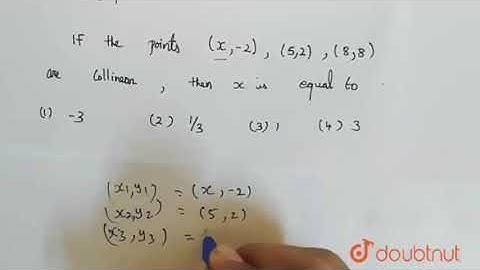 If the points (x,-2), (5,2), (8,8)
are Collinear, then x is equal to
(1) -3 (2) 1/3 (3) 1 (4) 3
(x1,y1) = (x,-2)
(x2,y2) = (5,2)
(x3,y3) =
doubtnut